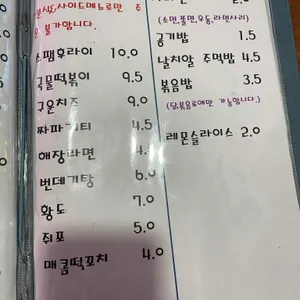 분식&사이드메뉴로만 주
불가합니다.
스팸후라이 10.0
국물떡볶이 9.5
구운치즈 9.0
짜파게티 4.5
해장라면 4.5
번데기탕 6.0
황도 7.0
쥐포 5.0
매콤떡꼬치 4.0
(소면,쫄면,우동,라면사리)
공기밥 1.5
날치알 주먹밥 4.5
볶음밥 3.5
(닭볶음류에만 가능합니다.)
레몬슬라이스 2.0